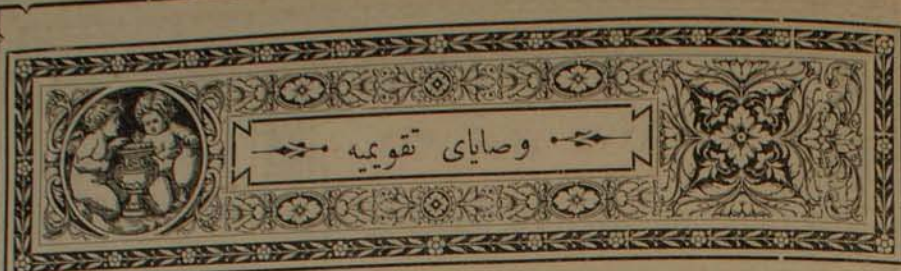 وصایای تقویمیه